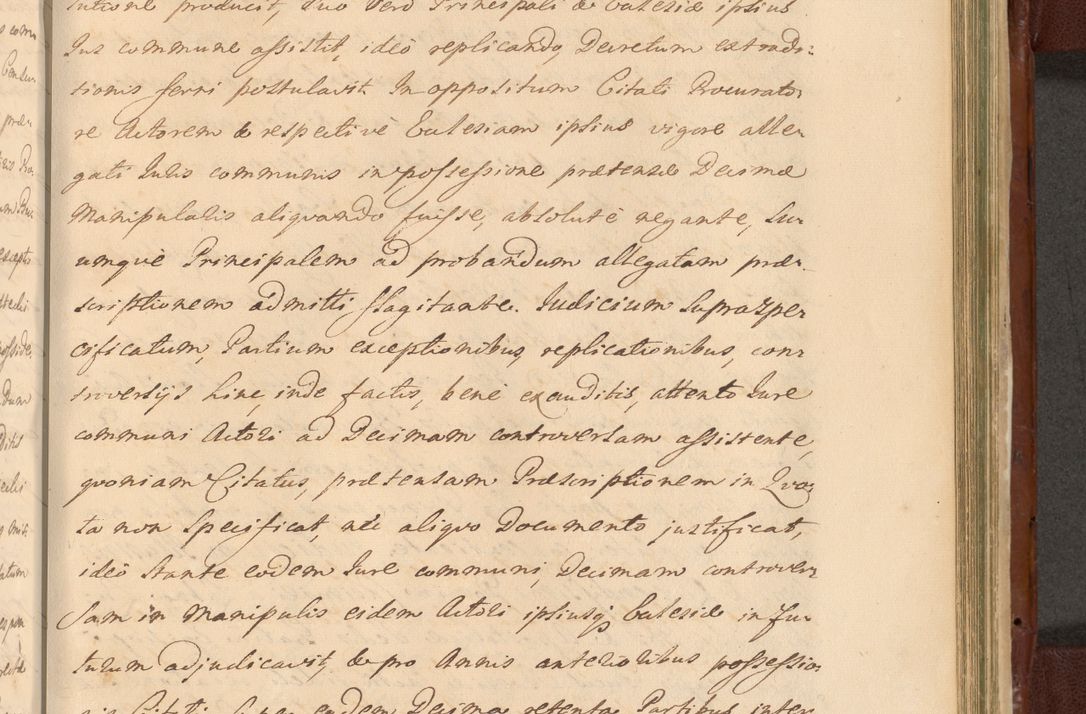 lutione producit, suo vero Principali & Ecclesiæ ipsius
Jus commune assistit, ideò replicando, Decretum extradi-
tionis ferri postulavit. In oppositum Citati Procurato-
re Actorem & respectivè Ecclesiam ipsius vigore alle-
gati Juris communis in possessione prætensæ Decimæ
Manipularis aliquando fuisse, absolutè negante, su-
umquè Principalem ad probandum allegatam præ-
scriptionem admitti flagitante. Judicium supraspe-
cificatum, Partium exceptionibus, replicationibus, con-
troversijs hinc, inde factis, benè exauditis, attento Jure
communi Actori ad Decimam controversam assistente,
quoniam Citatus, prætensam Præscriptionem in Quo-
ta non specificat, nec aliquo Documento justificat,
ideò stante eodem Jure communi, Decimam controver-
sam in Manipulis eidem Actori ipsiusq Ecclesiæ in fu-
turum adjudicavit, & pro Annis anterioribus possessio-
nis Citati super eadem Decima retenta Partibus inter